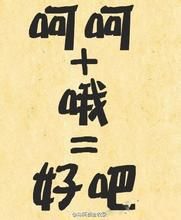 呵呵
+
哦
=
好吧